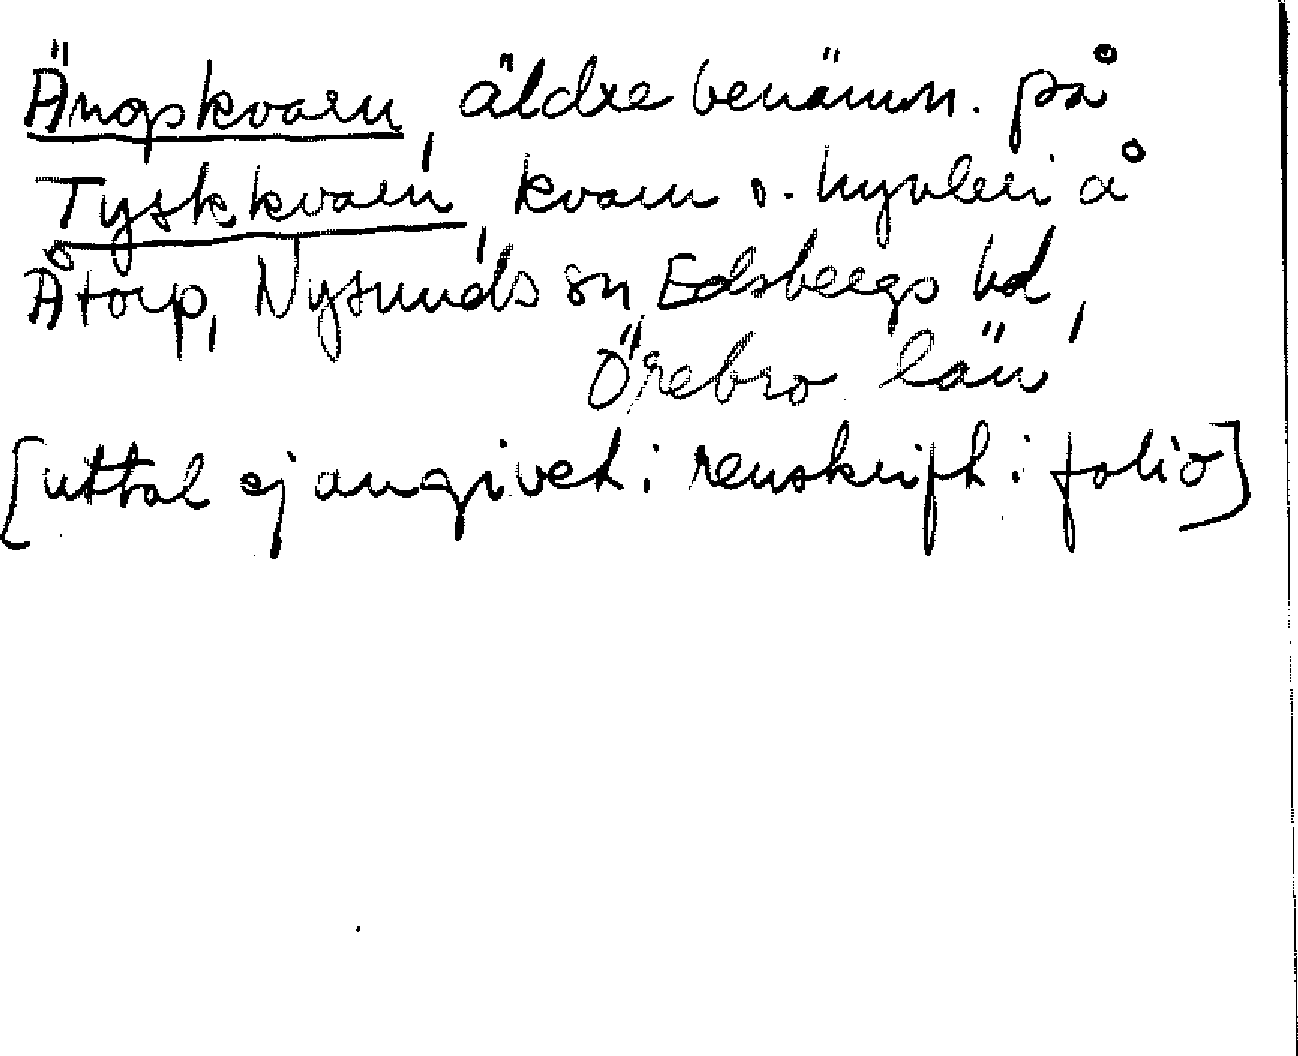 Ängskvarn, äldre benämn. på
Tyskkvarn, kvarn o. hyvleri å
Åtorp, Nysunds sn, Edsbergs hd,
Örebro län
[uttal ej angivet i renskrift i folio]